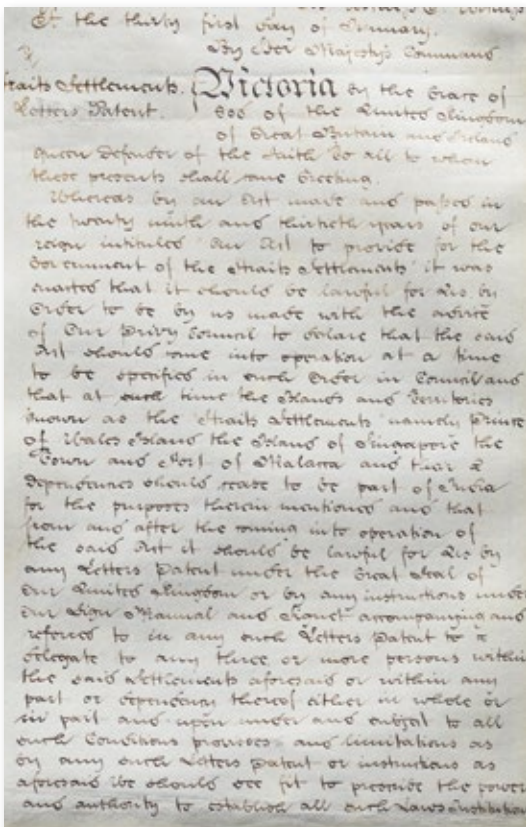 the thirty first day of January.
By Her Majestys Command
Straits Settlements. Victoria by the Grace of
Letters Patent. God of the United Kingdom
of Great Britain and Ireland
Queen Defender of the Faith To all to whom
these presents shall come Greeting.
Whereas by an Act made and passed in
the twenty ninth and thirtieth years of our
reign intituled "An Act to provide for the
Government of the Straits Settlements" it was
enacted that it should be lawful for Us by
Order to be by us made with the advice
of Our Privy Council to declare that the said
Act should come into operation at a time
to be specified in such Order in Council and
that at such time the Islands and Territories
known as the Straits Settlements namely Prince
of Wales Island the Island of Singapore the
Town and Port of Malacca and their
dependencies should cease to be part of India
for the purposes therein mentioned and that
from and after the coming into operation of
the said Act it should be lawful for Us by
any Letters Patent under the Great Seal of
Our United Kingdom or by any instructions under
Our Sign Manual and Signet accompanying and
referred to in any such Letters Patent to
delegate to any three or more persons within
the said Settlements aforesaid or within any
part or dependency thereof either in whole or
in part and upon under and subject to all
such Conditions provisoes and limitations as
by any such Letters Patent or instructions as
aforesaid We should see fit to prescribe the power
and authority to establish all such Laws Institution